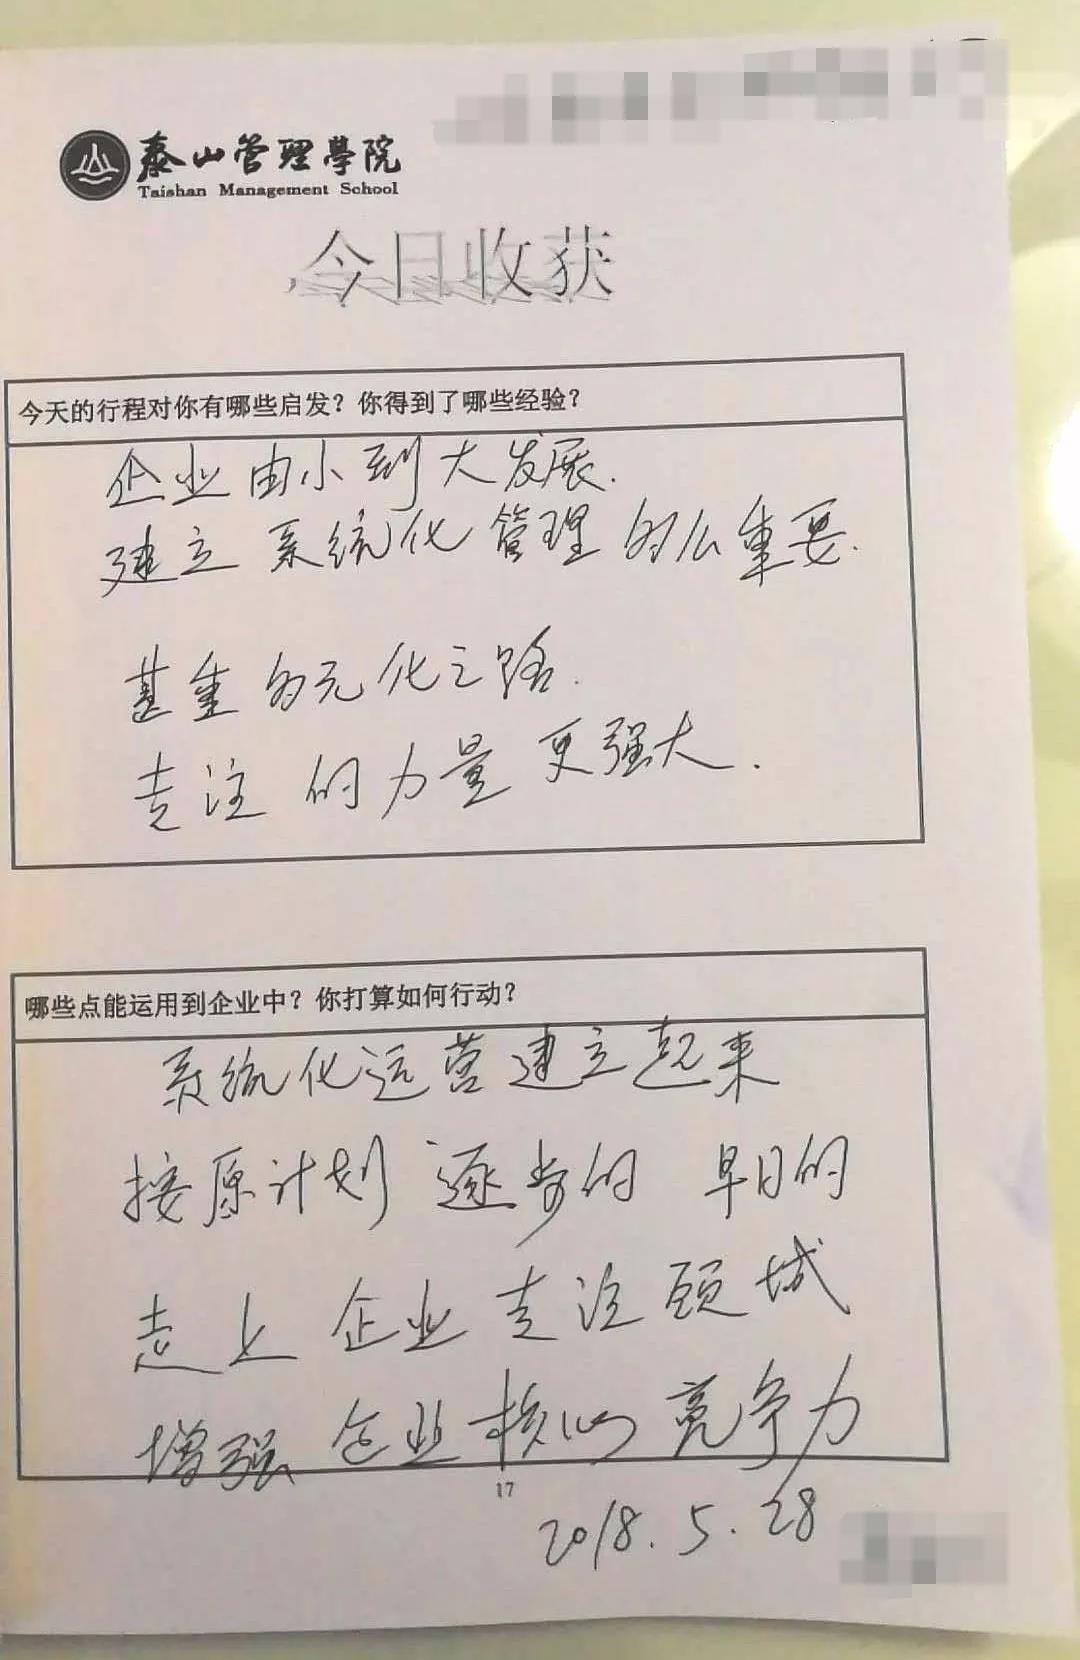 泰山管理學院
Taishan Management School
今日收获
今天的行程对你有哪些启发？你得到了哪些经验？
企业由小到大发展.
建立系统化管理的么重要.
甚重 的元化之路.
专注的力量更强大.
哪些点能运用到企业中？你打算如何行动？
系统化运营建立起来
按原计划 逐步的 早日的
走上企业专注领域
增强企业核心竞争力
17
2018.5.28